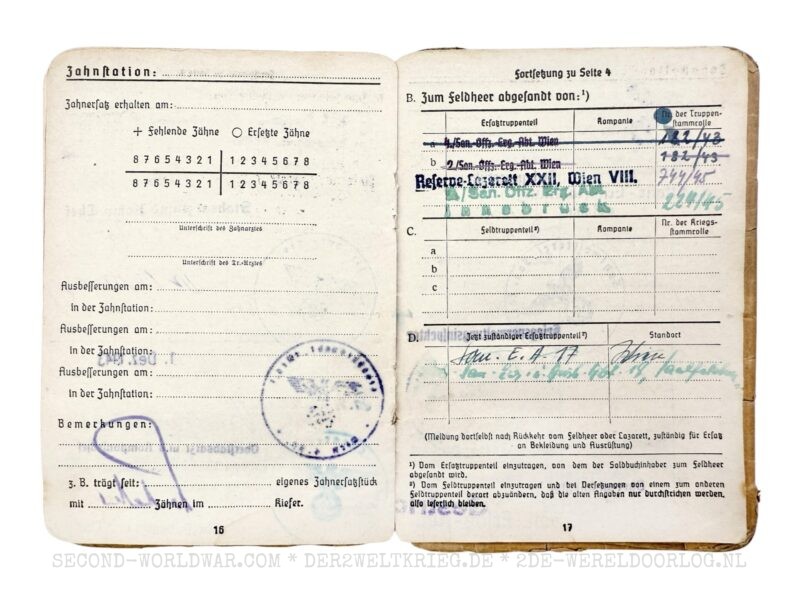 Zahnstation:
Zahnersatz erhalten am:
+ Fehlende Zähne ○ Ersetzte Zähne
8 7 6 5 4 3 2 1 | 1 2 3 4 5 6 7 8
8 7 6 5 4 3 2 1 | 1 2 3 4 5 6 7 8
Unterschrift des Zahnarztes
Unterschrift des Tr.-Arztes
Ausbesserungen am:
In der Zahnstation:
Ausbesserungen am:
In der Zahnstation:
Ausbesserungen am:
In der Zahnstation:
Bemerkungen:
z. B. trägt seit: eigenes Zahnersatzstück
mit Zähnen im Kiefer.
16
Fortsetzung zu Seite 4
B. Zum Feldheer abgesandt von:¹)
Ersatztruppenteil Kompanie Nr. der Truppen-
stammrolle
a 4./San.-Offz.-Erg.-Abt. Wien 182/43
b 2./San.-Offz.-Erg.-Abt. Wien 182/43
Reserve-Lazarett XXII, Wien VIII. 744/45
San. Offz. Erg. Abt. 224/45
Innsbruck
C. Feldtruppenteil²) Kompanie Nr. der Kriegs-
stammrolle
a
b
c
D. Jetzt zuständiger Ersatztruppenteil²) Standort
San. E. A. 17
(Meldung dortselbst nach Rückkehr vom Feldheer oder Lazarett, zuständig für Ersatz
an Bekleidung und Ausrüstung)
¹) Vom Ersatztruppenteil einzutragen, von dem der Soldbuchinhaber zum Feldheer
abgesandt wird.
²) Vom Feldtruppenteil einzutragen und bei Versetzungen von einem zum anderen
Feldtruppenteil derart abzuändern, daß die alten Angaben nur durchstrichen werden,
also leserlich bleiben.
17
SECOND-WORLDWAR.COM * DER2WELTKRIEG.DE * 2DE-WERELDOORLOG.NL